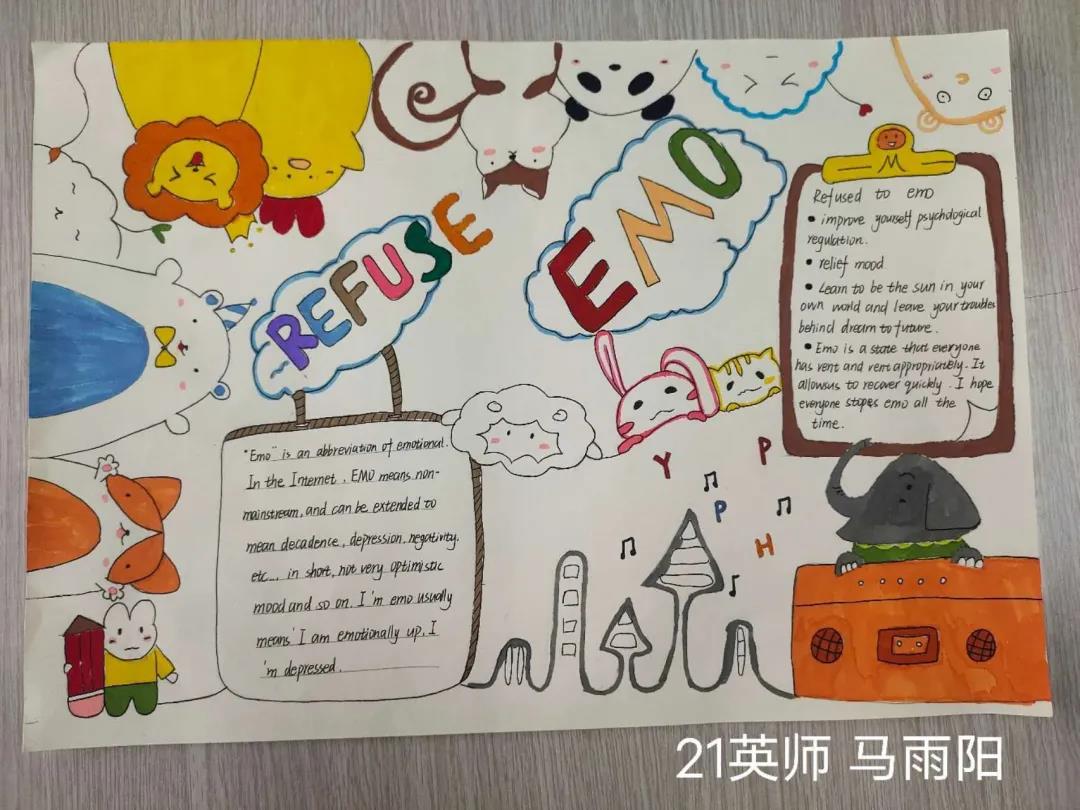 REFUSE
EMO
Refused to emo
• improve yourself psychological
regulation.
• relief mood
• Learn to be the sun in your
own world and leave your troubles
behind dream to future.
• Emo is a state that everyone
has vent and vent appropriately. It
allowsus to recover quickly. I hope
everyone stopes emo all the
time.
"Emo" is an abbreviation of emotional.
In the Internet, EMO means non-
mainstream, and can be extended to
mean decadence, depression, negativity.
etc... in short, not very optimistic
mood and so on. I'm emo usually
means' I am emotionally up, I
'm depressed.
Y P
P
H
21英师 马雨阳